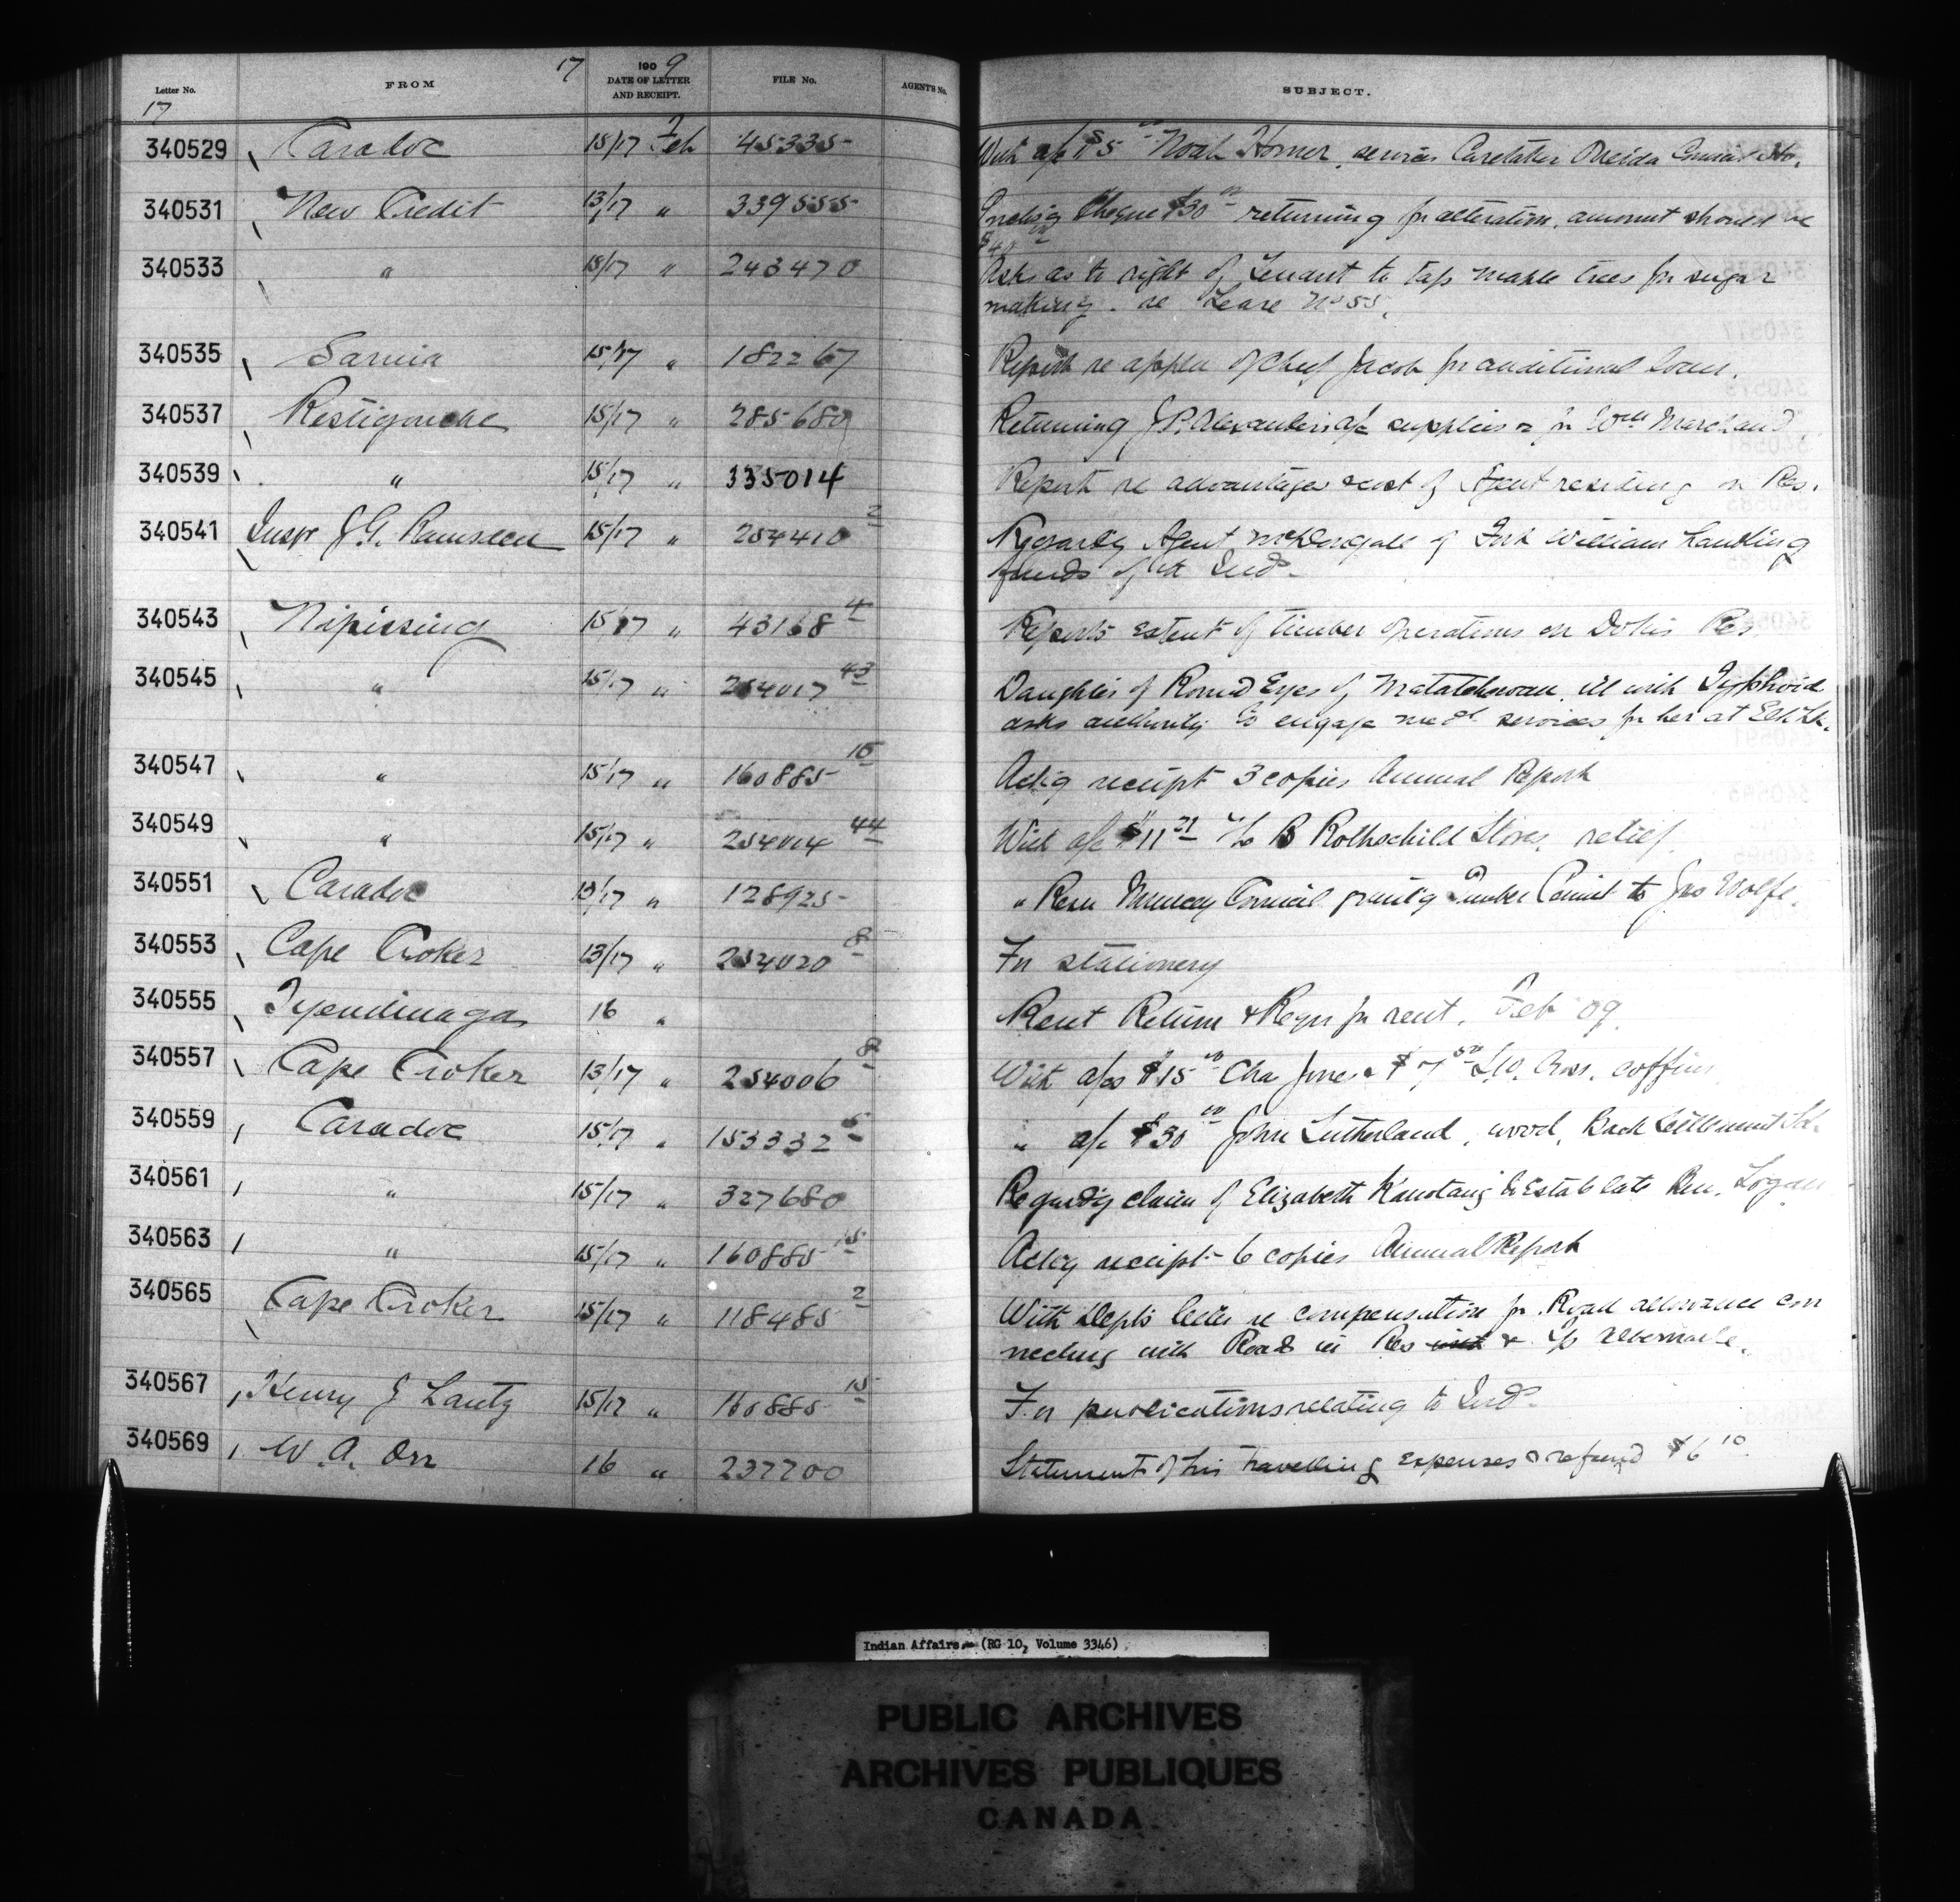 17 1909
Letter No. FROM DATE OF LETTER AND RECEIPT. FILE No. AGENT'S No. SUBJECT.
17
340529 Caradoc 15/17 Feb 45335 With a/c $5 00 Noah Homer, services Caretaker Oneida Council Ho.
340531 New Credit 13/17 " 339555 Enclos'g Cheque $30 00 returning for alteration, amount should be
$40 00
340533 " 15/17 " 243470 Asks as to right of Tenant to tap maple trees for sugar
making. re Lease No 55.
340535 Sarnia 15/17 " 182267 Report re applcn of Chief Jacob for additional loan.
340537 Restigouche 15/17 " 285689 Returning J.P. Alexander's a/c supplies for Wm Marchand
340539 " 15/17 " 335014 Report re advantages & cost of Agent residing on Res.
340541 Inspr J.G. Ramsden 15/17 " 254410 2 Regards Agent McDougall of Fort William handling
funds of Inds.
340543 Nipissing 15/17 " 43168 4 Reports extent of timber operations on Dokis Res
340545 " 15/17 " 254017 43 Daughter of Round Eyes of Matatchewan ill with Typhoid
asks authority to engage medl services for her at Elk Lk.
340547 " 15/17 " 160885 15 Ack'g receipt 3 copies Annual Report
340549 " 15/17 " 254014 44 With a/c $11 21 B Rothschild Stores, relief.
340551 Caradoc 13/17 " 128925 " Resn Muncey Council grant'g Timber Permit to Jno Wolfe.
340553 Cape Croker 13/17 " 254020 8 For stationery
340555 Tyendinaga 16 " Rent Return & Reqn for rent. Feb 09.
340557 Cape Croker 13/17 " 254006 8 With a/cs $15 00 Cha Jones & $7 50 Cross. coffins
340559 Caradoc 15/17 " 153332 6 " a/c $30 00 John Sutherland, wood, Back Settlement Sch.
340561 " 15/17 " 327680 Regard'g claim of Elizabeth Kanotaing to Estate late Logan
340563 " 15/17 " 160885 15 Ack'g receipt 6 copies Annual Report
340565 Cape Croker 15/17 " 118485 2 With Dept's letter re compensation for Road allowance con
necting with Road in Res & Tp Albemarle.
340567 Henry J Lantz 15/17 " 160885 15 For publications relating to Inds.
340569 W. A. Orr 16 " 237700 Statement of his travelling expenses & refund $6 10
Indian Affairs. (RG 10, Volume 3346)
PUBLIC ARCHIVES
ARCHIVES PUBLIQUES
CANADA